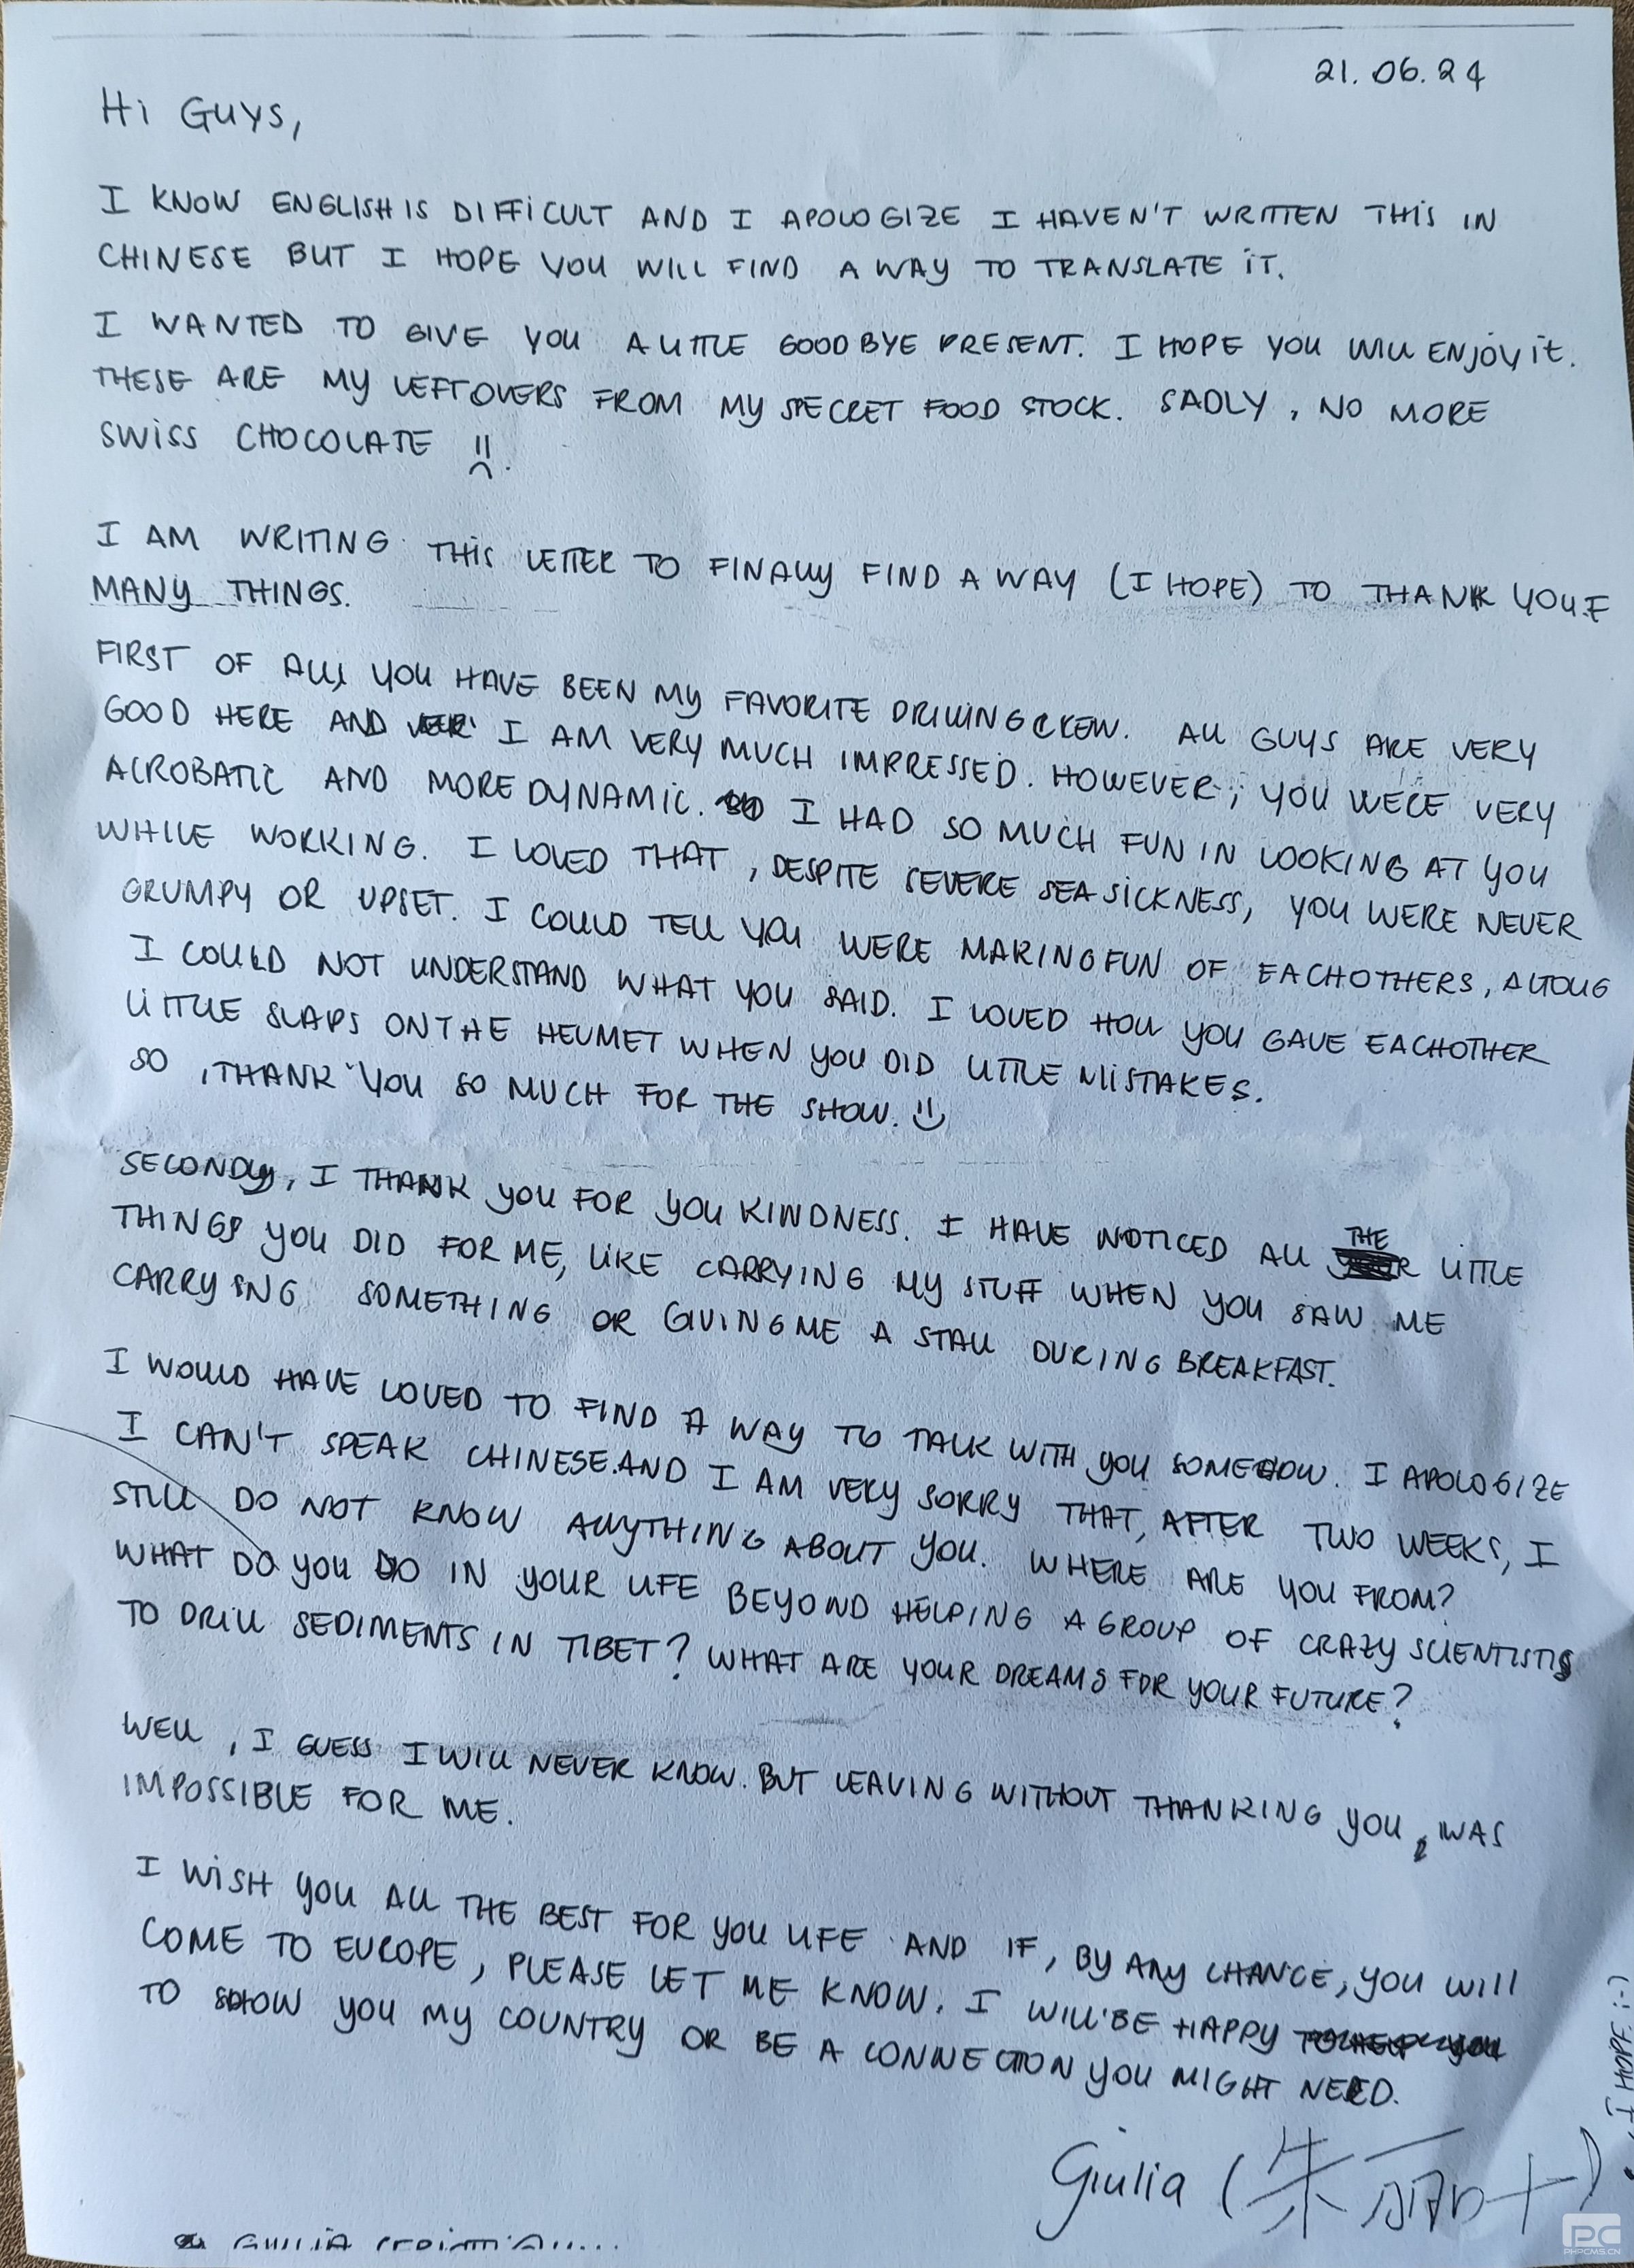 21.06.24
Hi GUYS,
I KNOW ENGLISH IS DIFFICULT AND I APOLOGIZE I HAVEN'T WRITTEN THIS IN
CHINESE BUT I HOPE YOU WILL FIND A WAY TO TRANSLATE IT.
I WANTED TO GIVE YOU A LITTLE GOODBYE PRESENT. I HOPE YOU WILL ENJOY it.
THESE ARE MY LEFTOVERS FROM MY SECRET FOOD STOCK. SADLY, NO MORE
SWISS CHOCOLATE
I AM WRITING THIS LETTER TO FINALLY FIND A WAY (I HOPE) TO THANK YOU
MANY THINGS.
FIRST OF ALL, YOU HAVE BEEN MY FAVORITE DRILLING CREW. ALL GUYS ARE VERY
GOOD HERE AND I AM VERY MUCH IMPRESSED. HOWEVER, YOU WERE VERY
ACROBATIC AND MORE DYNAMIC. I HAD SO MUCH FUN IN LOOKING AT YOU
WHILE WORKING. I LOVED THAT, DESPITE SEVERE SEASICKNESS, YOU WERE NEVER
GRUMPY OR UPSET. I COULD TELL YOU WERE MAKING FUN OF EACHOTHERS, ALTOUG
I COULD NOT UNDERSTAND WHAT YOU SAID. I LOVED HOW YOU GAVE EACHOTHER
LITTLE SLAPS ON THE HELMET WHEN YOU DID LITTLE MISTAKES.
SO, THANK YOU SO MUCH FOR THE SHOW.
SECONDLY, I THANK YOU FOR YOU KINDNESS. I HAVE NOTICED ALL THE LITTLE
THINGS YOU DID FOR ME, LIKE CARRYING MY STUFF WHEN YOU SAW ME
CARRYING SOMETHING OR GIVING ME A STALL DURING BREAKFAST.
I WOULD HAVE LOVED TO FIND A WAY TO TALK WITH YOU SOMEHOW. I APOLOGIZE
I CAN'T SPEAK CHINESE AND I AM VERY SORRY THAT, AFTER TWO WEEKS, I
STILL DO NOT KNOW ANYTHING ABOUT YOU. WHERE ARE YOU FROM?
WHAT DO YOU DO IN YOUR LIFE BEYOND HELPING A GROUP OF CRAZY SCIENTISTS
TO DRILL SEDIMENTS IN TIBET? WHAT ARE YOUR DREAMS FOR YOUR FUTURE?
WELL, I GUESS I WILL NEVER KNOW. BUT LEAVING WITHOUT THANKING YOU, WAS
IMPOSSIBLE FOR ME.
I WISH YOU ALL THE BEST FOR YOU LIFE AND IF, BY ANY CHANCE, YOU WILL
COME TO EUROPE, PLEASE LET ME KNOW. I WILL BE HAPPY
TO SHOW YOU MY COUNTRY OR BE A CONNECTION YOU MIGHT NEED.
Giulia (朱丽叶)
(I HOPE :-)
GIULIA
PHPCMS.CN